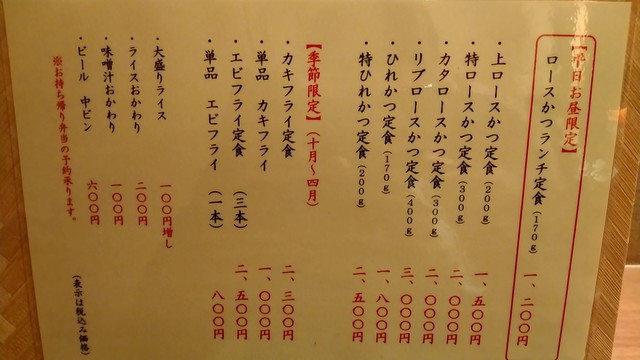 【平日お昼限定】
ロースかつランチ定食(170g) 一、二〇〇円
・上ロースかつ定食(200g) 一、五〇〇円
・特ロースかつ定食(300g) 二、〇〇〇円
・カタロースかつ定食(300g) 二、〇〇〇円
・リブロースかつ定食(400g) 三、〇〇〇円
・ひれかつ定食(170g) 一、八〇〇円
・特ひれかつ定食(200g) 二、五〇〇円
【季節限定】(十月〜四月)
・カキフライ定食 二、三〇〇円
・単品 カキフライ 一、〇〇〇円
・エビフライ定食 (三本) 二、五〇〇円
・単品 エビフライ (一本) 八〇〇円
・大盛りライス 一〇〇円増し
・ライスおかわり 二〇〇円
・味噌汁おかわり 一〇〇円
・ビール 中ビン 六〇〇円
※お持ち帰り弁当の予約承ります。
(表示は税込み価格)